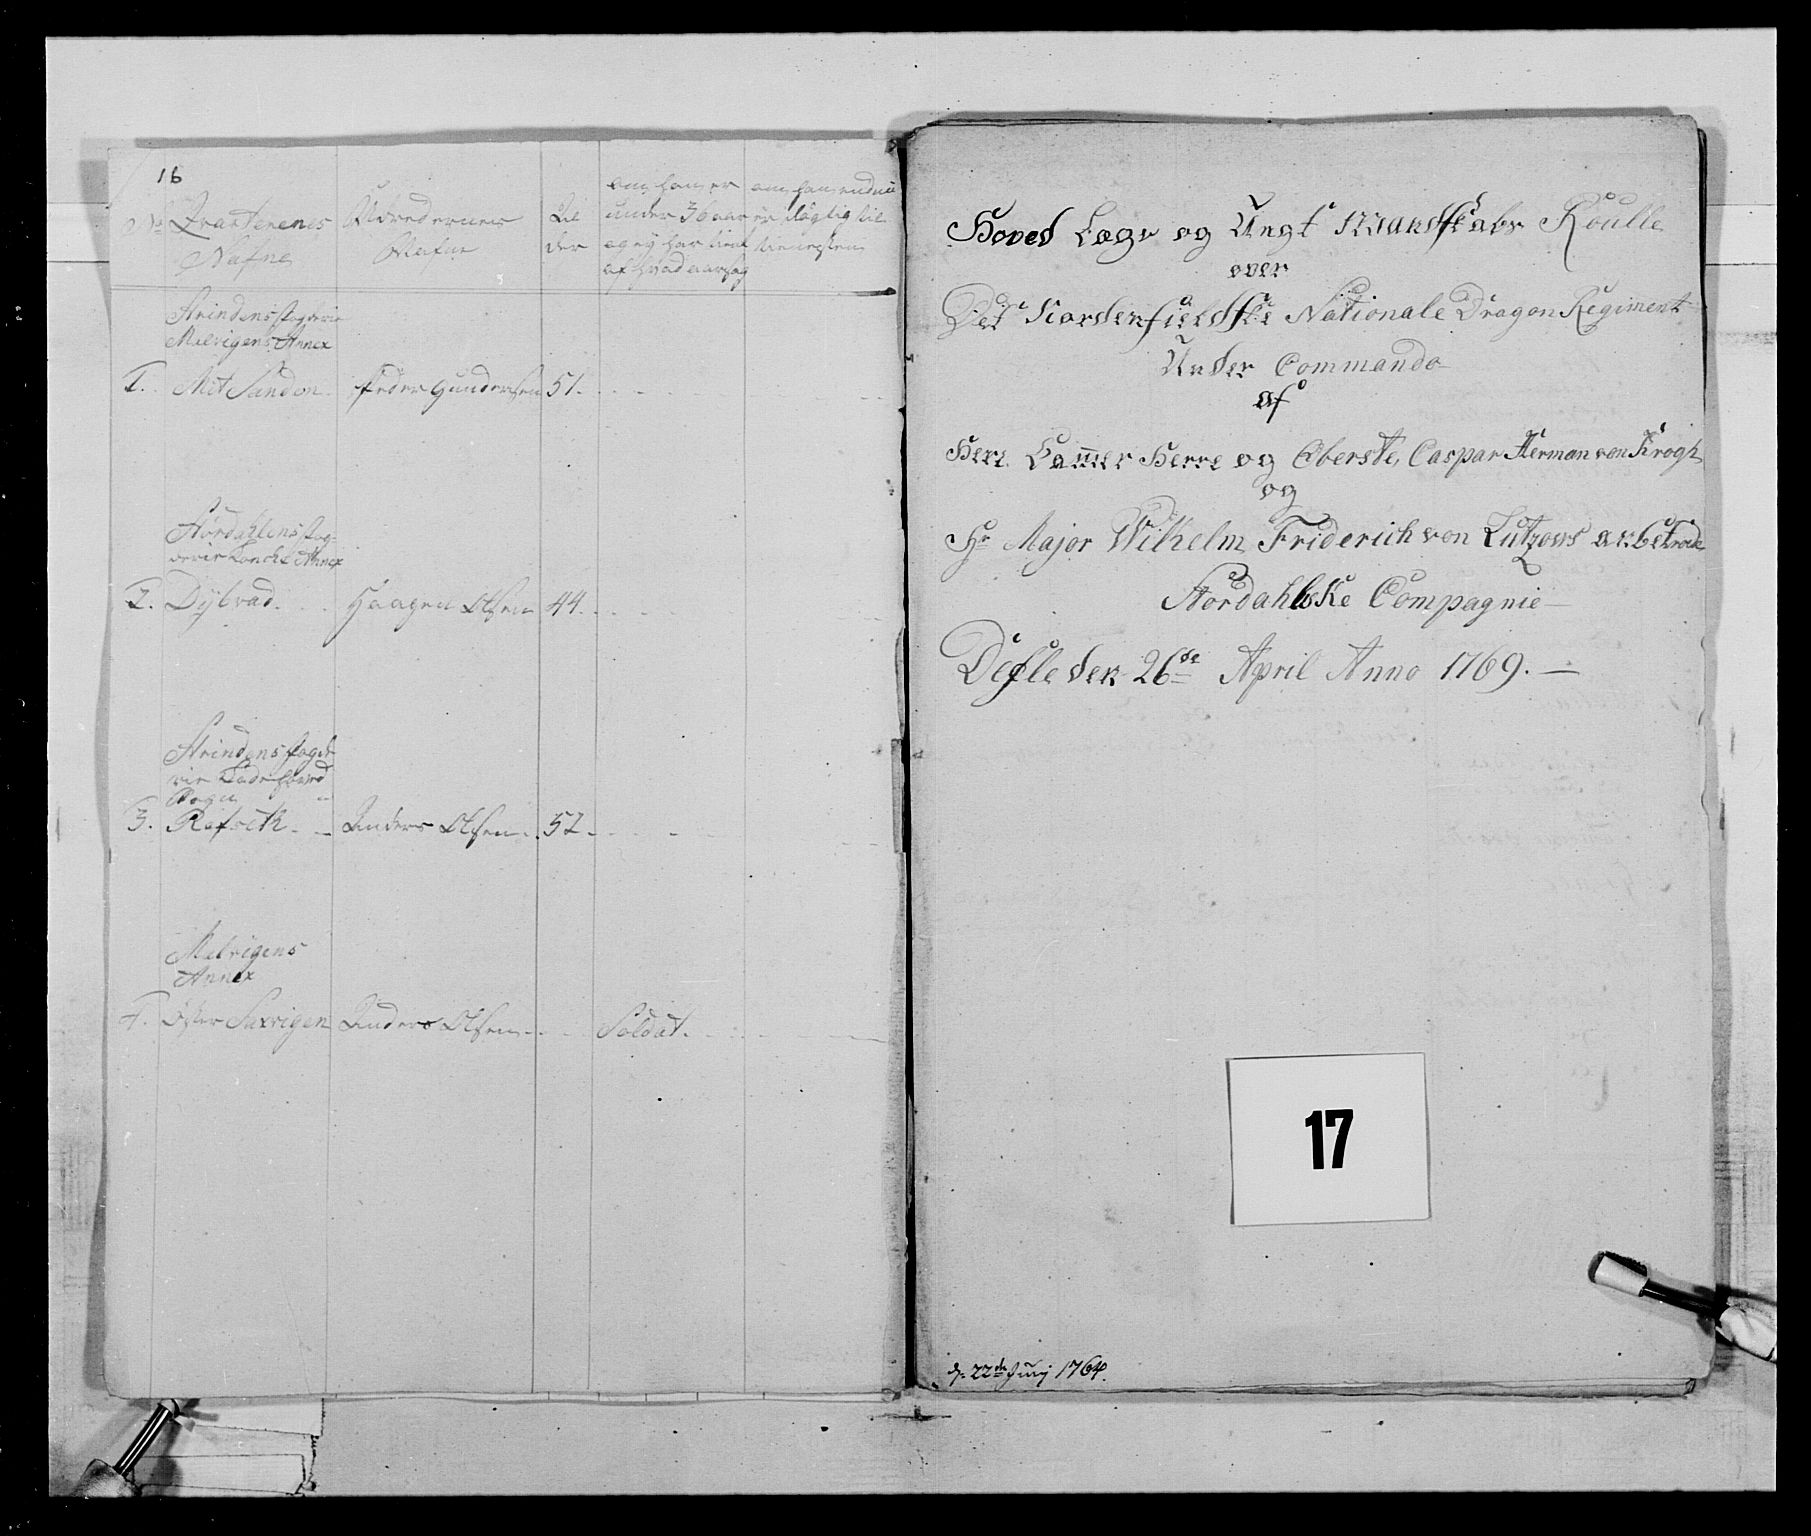 16
No Qvarterenes Nafne
Udredernes Nafne
Alder
om han er under 36 aar og ey har tient af hvad aarsag
om han endnu er dygtig til tienesten
Strindens fogderie
Melvigens Annex
1. Mit Sanden - Peder Gundersen 51.
Størdahlens fog-
derie Lancke Annex
2. Dybvad. Haagen Olsen 44.
Strindens fogde
rie Lade hoved
Sogn
3. Refseth - Anders Olsen. 52.
Malvigens
Annex
4. Øster Saxvigen Anders Olsen - Soldat.
Hoved Lægs og Ungt Mandskabs Roulle
over
Det Nordenfieldske Nationale Dragon Regiment
Under Commando
af
Herr Cammer Herre og Oberste, Caspar Herman von Krogh
og
Hr Major Wilhelm Friderich von Lützows anbetroede
Størdahlske Compagnie
Defle den 26de April Anno 1769. —
17
d. 22de Junij 1764.